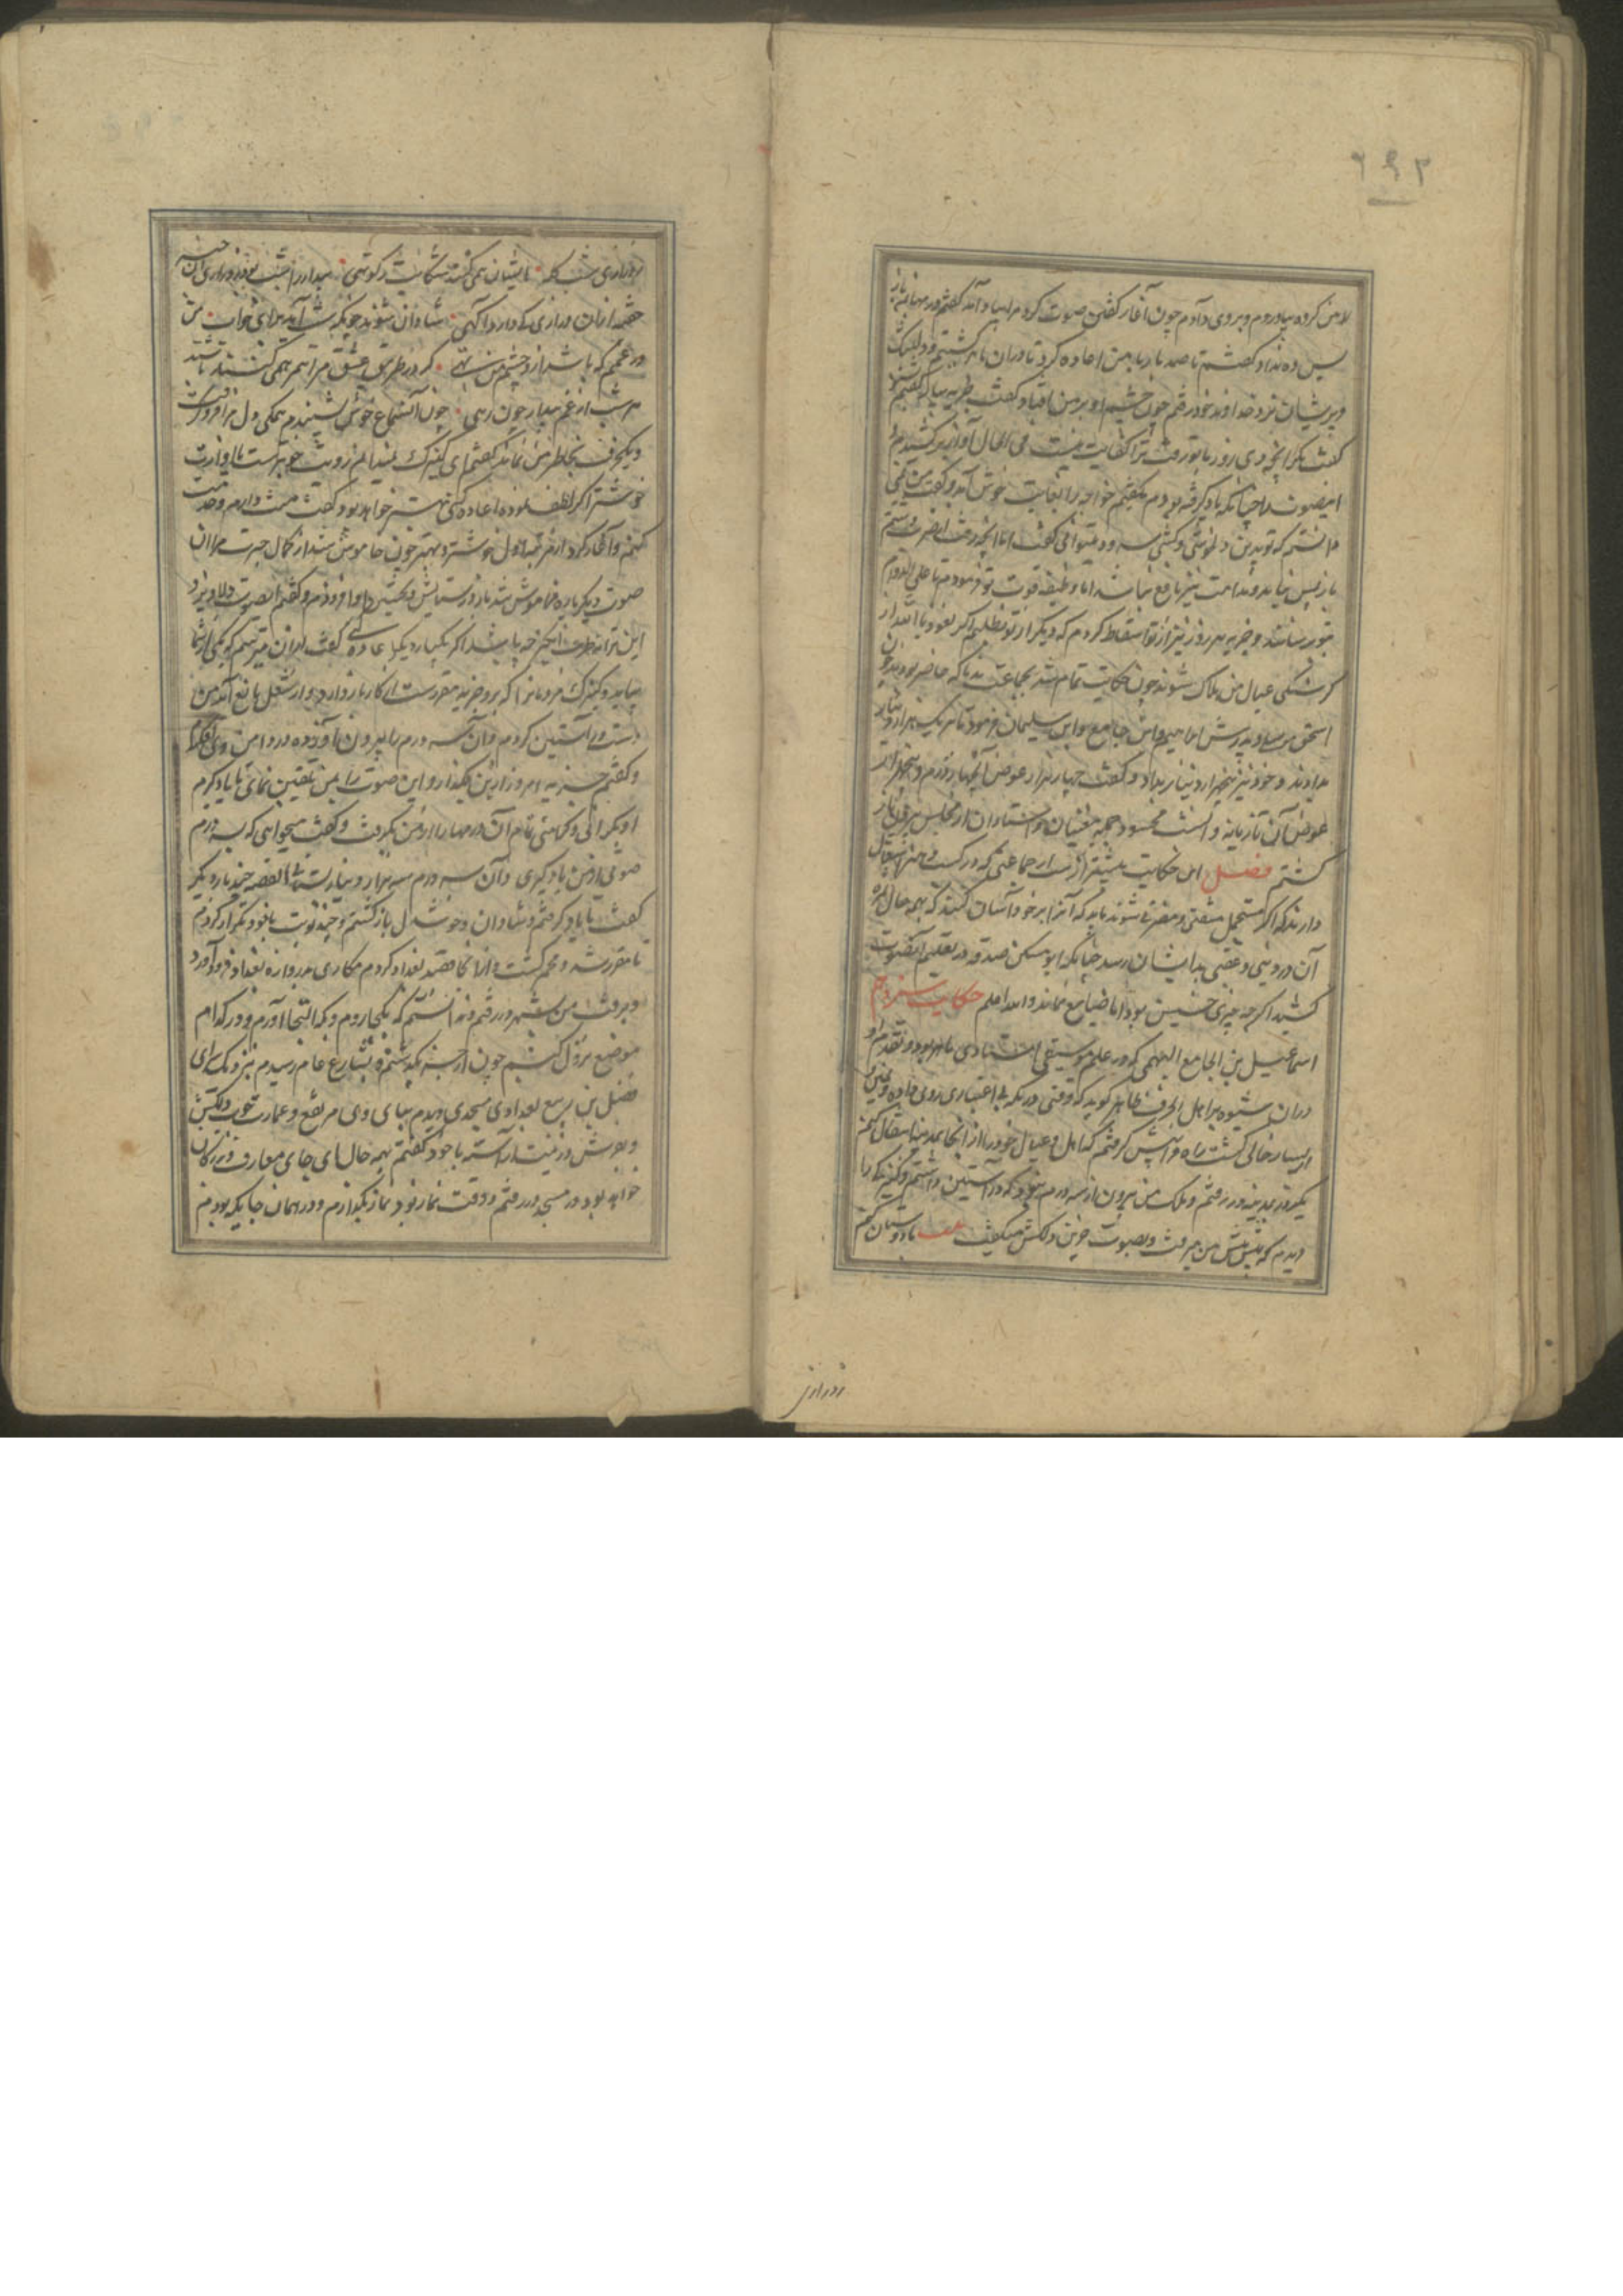 ۲۹۲
لازمن کرده بیاوردم و بروی دادم چون آغاز گفتن صوت کرد مرا بیاد آمد گفتم درمها بمن باز
پس ده نداد گفتم تا صد بار با من اعاده کرد تا دران
و پریشان نزد خداوند خود رفتم چون چشم او بر من افتاد گفت ضریبه بیار گفتم بشنو
گفت مگر آنچه دی روز با تو رفت ترا کفایت نیست فی الحال آواز برکشیدم و
این صوت را چنانکه یاد گرفته بودم بگفتم خواجه را بغایت خوش آمد و گفت
دانستم که تو بدین دلخوشی و کشی میتوانی گفت اما آنچه رفت
باز پس نیاید و ندامت نیز نافع نباشد اما وظیفه قوت تو فرمودم تا علی الدوام
بتو رسانند و ضریبه هر روز نیز از تو اسقاط کردم که دیگر از تو نطلبم اگر نعوذ بالله از
گرسنگی عیال من هلاک شوند چون حکایت تمام شد بجماعت ندما که حاضر بودند چون
اسحق موصلی و پدرش ابراهیم و ابن جامع و ابن سلیمان فرمود تا هر یک هزار دینار
بدادند و خود نیز پنجهزار دینار بداد و گفت چهار هزار عوض آن چهار درم و پنجهزار
عوض آن تازیانه و انگشت محسود جمله مغنیان و استادان از مجلس بیرون
گشتم فصل این حکایت بیشتر از جماعتی که در کسب و هنر اشتغال
دارند که اگر متحمل مشقتی و مضرتی شوند باید که آنرا بر خود آسان کنند که بهمه حال
آن در وقتی و عقبی بدیشان رسد چنانکه ابو مسکن صدقه در تعلیم آن صوت
کشید اگر چه چیزی خسیس بود اما ضایع نماند والله اعلم حکایت سیزدهم
اسماعیل بن الجامع السهمی که در علم موسیقی استادی ماهر بود و تقدم او
دران شیوه بر اهل الحرف ظاهر گوید که وقتی در مکه بی اعتباری روی داد و
از یسار خالی گشت راه فرا پیش گرفتم که اهل و عیال خود را از آنجا بمدینه انتقال کنم
یکروز بمدینه در رفتم و ملک من بیرون از سه درم نبود که در آستین داشتم و کنیزکی را
دیدم که پیش پیش من میرفت و بصوت حزین دلکش میگفت بیت با دوستان گفتم
زدرازی
زدرازی شب گله ایشان همی کنند شکایت ز کوتهی بیدار را شب بود دراز و آن
خفته ازان درازی کی دارد آگهی شادان شوند چونکه شب آید برای خواب من
در غمم که باشد از و چشم من تهی گر در طریق عشق مرا همرهی کنند باشند
هر شب از غم بیدار چون رهی چون آن سماع خوش شنیدم همگی دل مرا فرو گرفت
و یکحرف بخاطر من نماند گفتم ای کنیزک نمیدانم رویت خوبترست یا آوازت
خوشتر اگر لطف نموده اعاده کنی بهتر خواهد بود گفت منت دارم و
کنم و آنگاه کرد از مرتبه اول خوشتر و بهتر چون خاموش شد از کمال حیرت مرا آن
صوت دیگر باره فراموش شد باز در ستایش و تحسین او افزودم و گفتم این صوت دلاویز و
این ترانه طرب انگیز چه باشد اگر یکبار دیگر اعاده کنی گفت ازان میترسم که یکی از شما
بیاید و کنیزک مردمانرا که بروی ضریبه مقررست از کار باز دارد و از شغل مانع آید من
دست در آستین کردم و آن سه درم را بیرون آورده در دامن وی فکندم
و گفتم ضریبه امروز ازین بگذار و این صوت را بمن تلقین نمای تا یاد گیرم
او بکرانی و کراهتی تمام آن درمها را از من بگرفت و گفت میخواهی که بسه درم
صوتی از من یاد گیری و آن سه درم سه هزار دینار بستانی القصه چند بار دیگر
گفت تا یاد گرفتم و شادان و خوشدل بازگشتم و چند نوبت با خود تکرار کردم
تا مقرر شد و محکم گشت و از آنجا قصد بغداد کردم مکاری بدروازه بغداد فرود آورد
و برفت من بشهر در رفتم و ندانستم که بکجا روم و بکه التجا آورم و در کدام
موضع نزول کنم چون از جسر بگذشتم و بشارع عام رسیدم نزدیک سرای
فضل بن ربیع بغدادی مسجدی دیدم بنای وی مرتفع و عمارت خوب و دلکش
و بفرش و زینت آراسته با خود گفتم بهمه حال این جای معارف و بزرگان
خواهد بود در مسجد در رفتم و وقت نماز بود نماز بگذاردم و در همان جایکه بودم